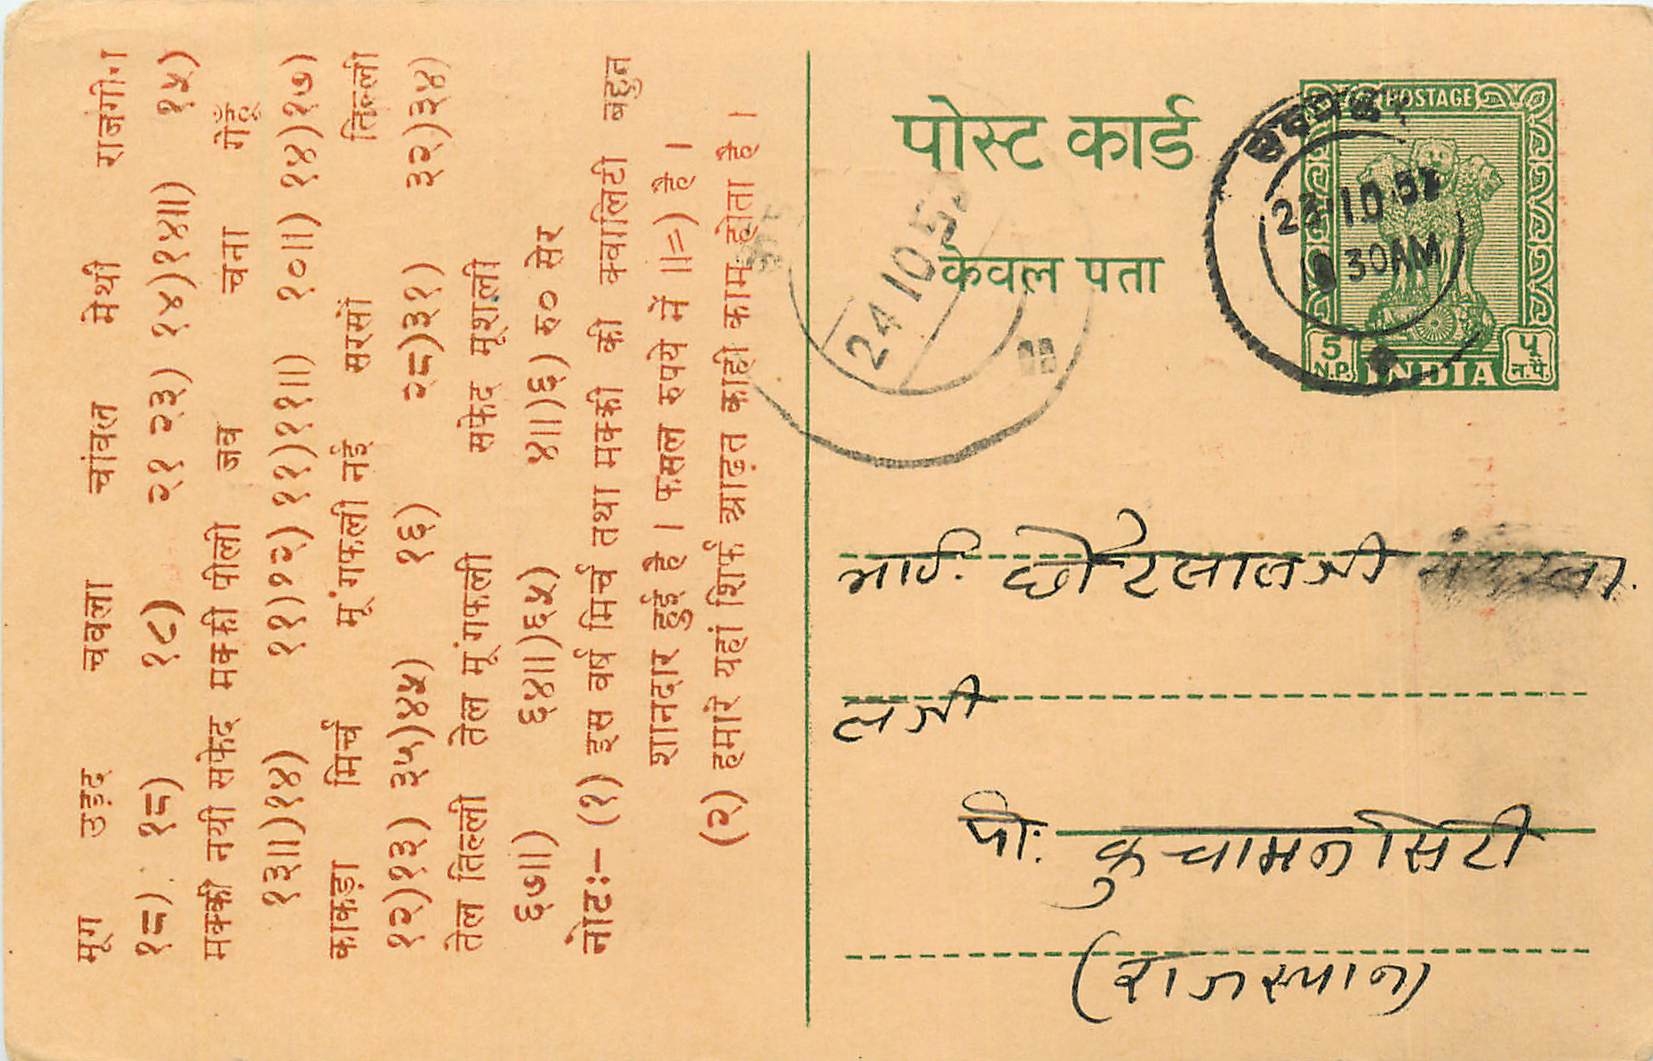 मूग उड़द चवला चांवल मेथी राजगीरा
१८) १८) १८) २१ २३) १४)१४॥) १५)
मक्की नयी सफेद मक्की पीली जव चना गेहूँ
१३॥)१४) ११)१२) ११)११॥) १०॥) १४)१७)
काकड़ा मिर्च मूंगफली नई सरसों तिल्ली
१२)१३) ३५)४५) १६) २८)३१) ३२)३४)
तेल तिल्ली तेल मूंगफली सफेद मूशली
६७॥) ६४॥)६५) ४॥)६) ८० सेर
नोट:- (१) इस वर्ष मिर्च तथा मक्की की क्वालिटी बहुत
शानदार हुई है । फसल रुपये में ॥=) है ।
(२) हमारे यहां शिर्फ आढ़त काही काम होता है ।
पोस्ट कार्ड
केवल पता
POSTAGE
5 N.P. INDIA ५ न.पै.
10
30AM
24 10 5
भाई. छोटेलालजी
लजी
पो: कुचामन सिटी
(राजस्थान)